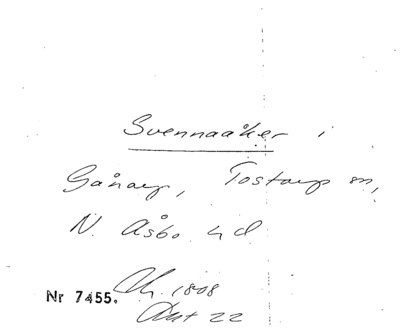 Svennaåker i
Gånarp, Tostarp sn,
N. Åsbo hd
Nr 7455. Ch. 1808
Akt 22